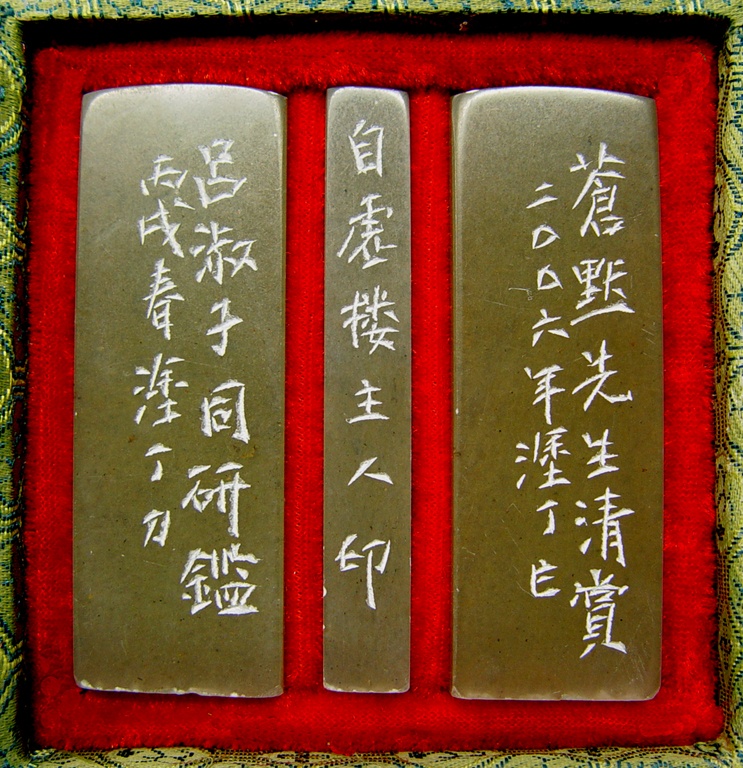 蒼點先生清賞
二〇〇六年塗丁上
自虛楼主人印
呂淑子同研鑑
丙戌春塗丁刀